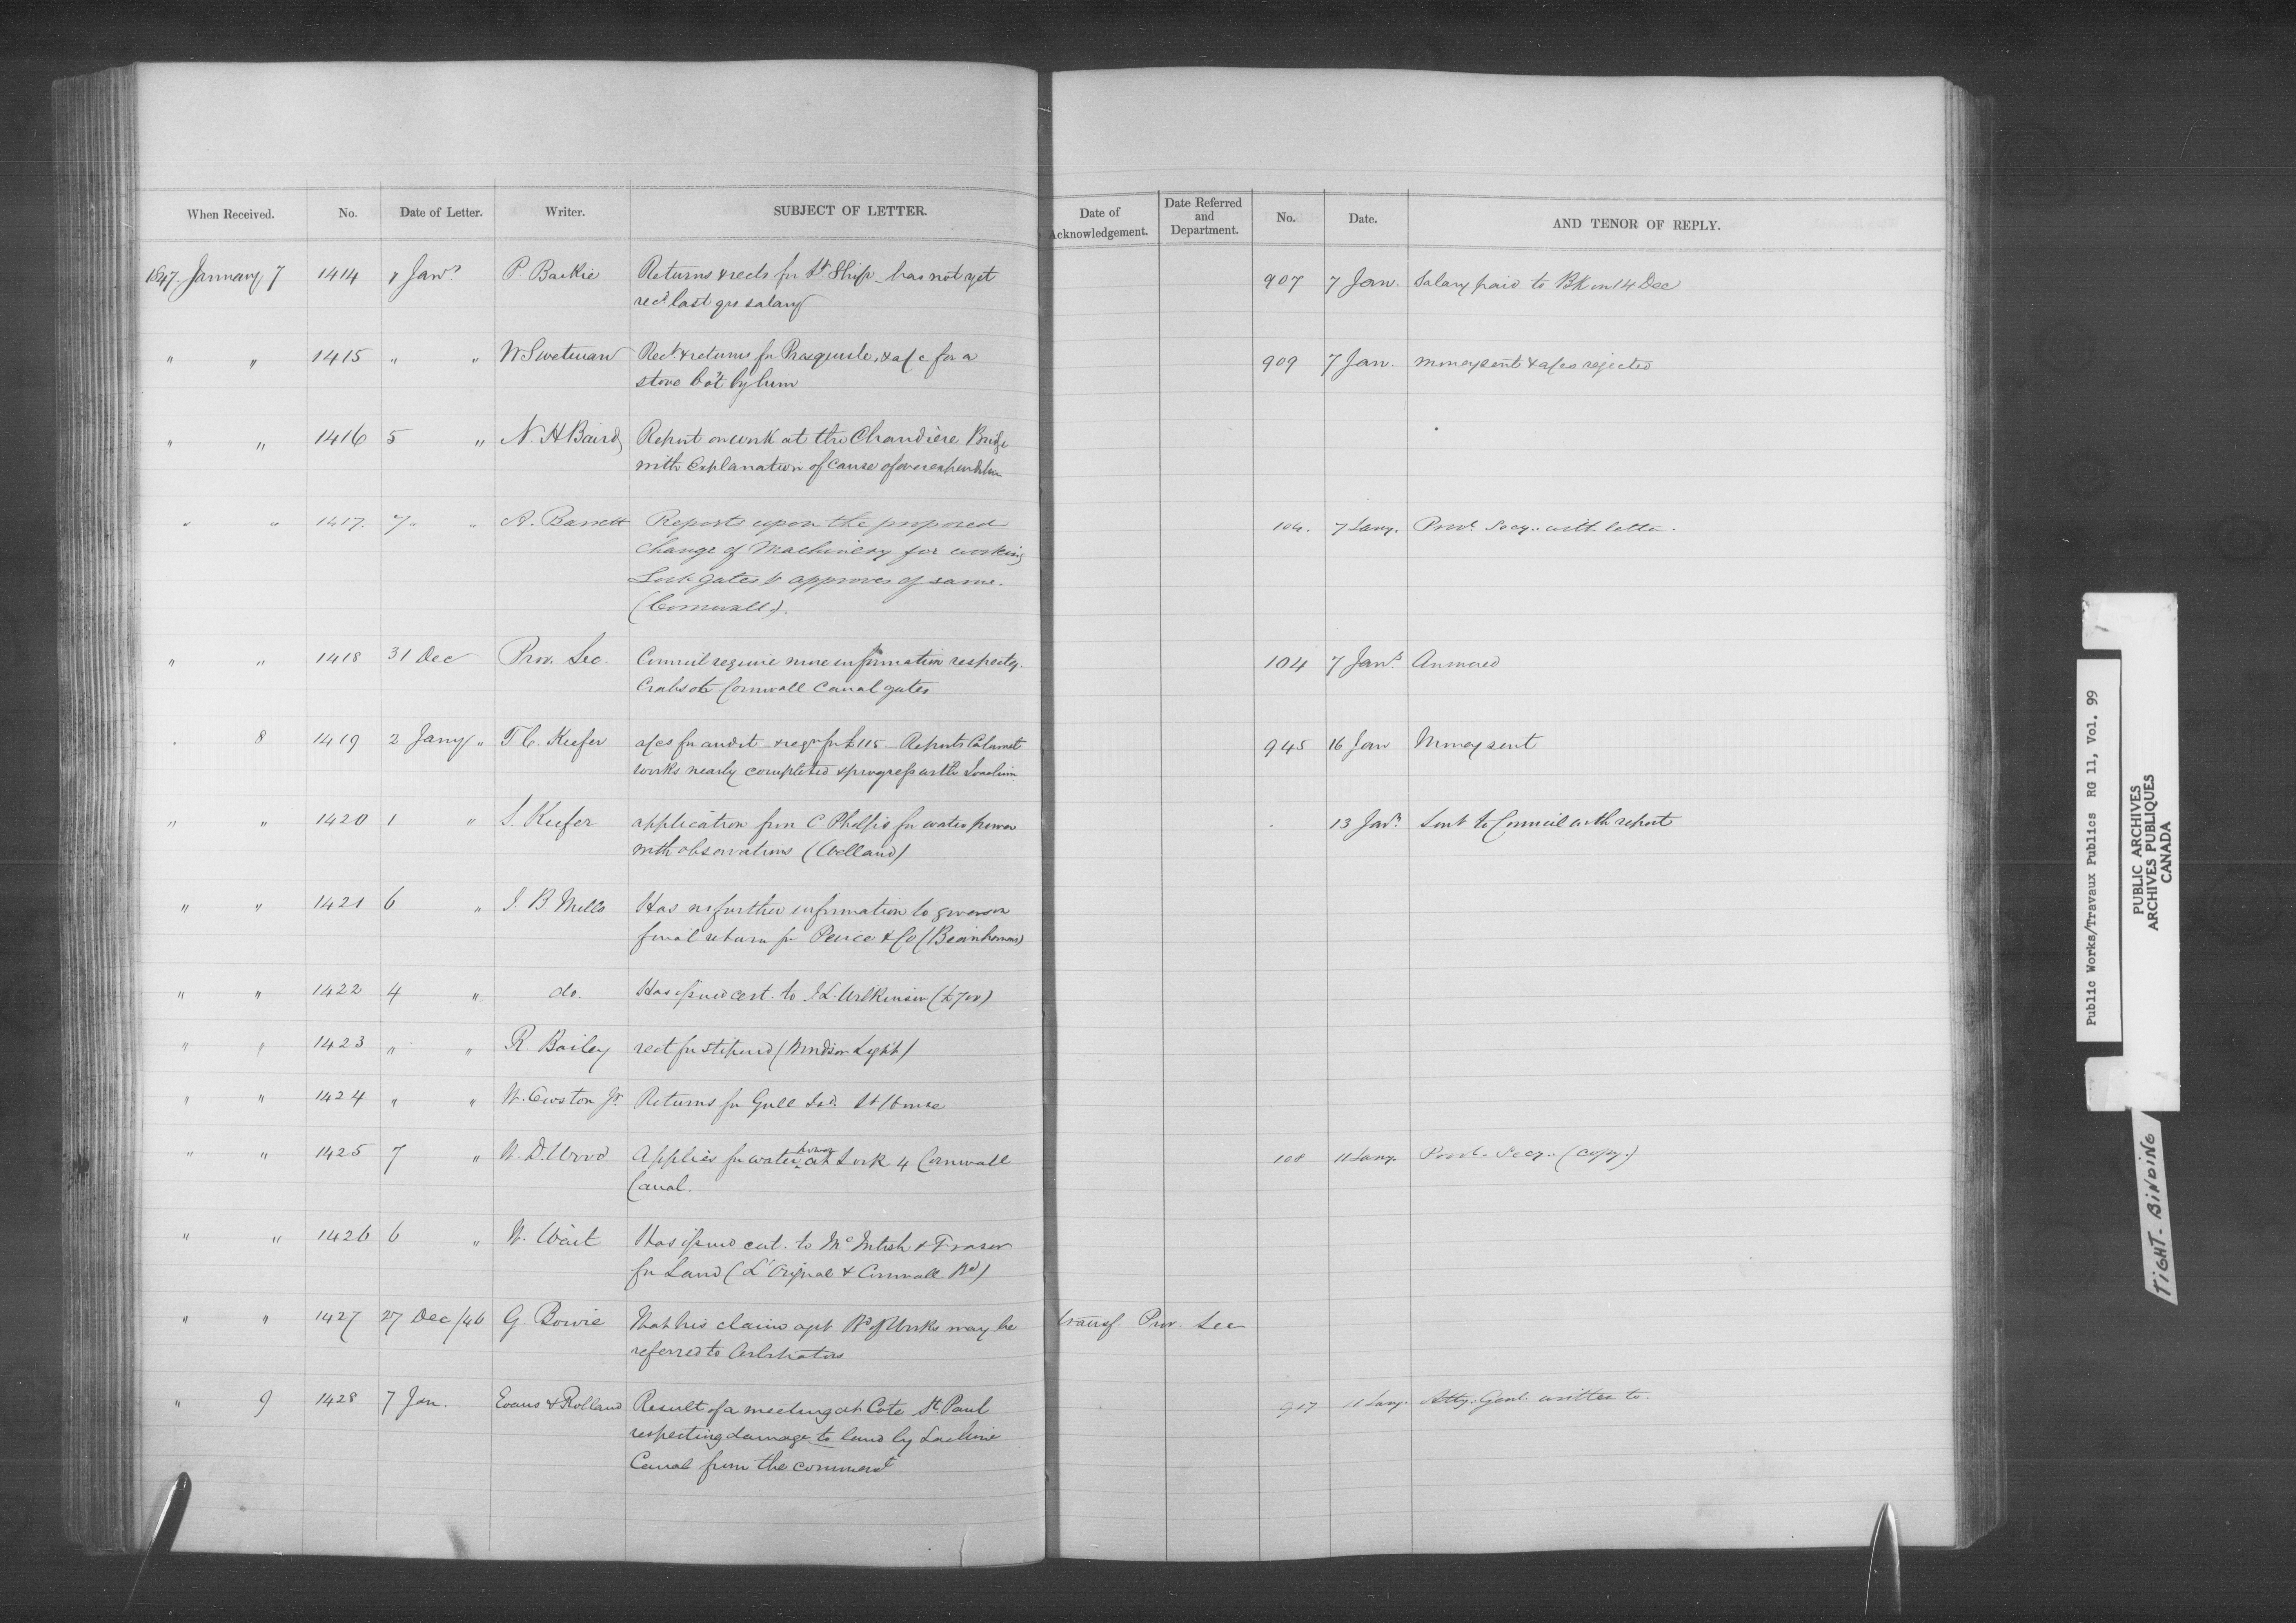 When Received. No. Date of Letter. Writer. SUBJECT OF LETTER. Date of Acknowledgement. Date Referred and Department. No. Date. AND TENOR OF REPLY.
1847. January 7 1414 Jany P. Baikie Returns & rects for Lt Ship has not yet 907 7 Jan. Salary paid to Bk on 14 Dec
recd last qrs salary
" " 1415 " " W Swetman Rect & returns for Presquisle, & a/c for a 909 7 Jan. money sent & a/cs rejected
stove bot by him
" " 1416 5 " N. H Baird Report on work at the Chaudière Bridge
with Explanation of cause of overexpenditure
" " 1417. 7 " " A. Barrett Reports upon the proposed 104. 7 Jany. Provl. Secy. with letter.
change of Machinery for working
Lock gates & approves of same.
(Cornwall).
" " 1418 31 Dec Prov. Sec. Council require more information respectg. 104 7 Jany. Answered
Crabs on Cornwall Canal gates
8 1419 2 Jany " T. C. Keefer a/cs for audit & reqn for £115 - Reports Calumet 945 16 Jan Money sent
works nearly completed & progress with Joachim
" " 1420 1 " S. Keefer application from C Phelps for water power 13 Jany. Sent to Council with report
with observations (Welland)
" " 1421 6 " J. B Mills Has no further information to give on
final return for Peirce & Co (Beauharnois)
" " 1422 4 " do. Has issued cert. to J L. Wilkinson (£700)
" " 1423 " " R. Bailey rect for stipend (Windsor Light)
" " 1424 " " W. Owston Jr. Returns for Gull Isd. Lt House
" " 1425 7 " W. D. Wood Applies for water power at Lock 4 Cornwall 108 11 Jany. Provl. Secy. (copy.)
Canal.
" " 1426 6 " W. Wait Has issued cert. to McIntosh & Fraser
for Land (L'Orignal & Cornwall Rd)
" " 1427 27 Dec/46 G. Bowie That his claims agst Bd of Works may be transf. Prov. Sec
referred to Arbitrators
" 9 1428 7 Jan. Evans & Rolland Result of a meeting at Cote St. Paul 917 11 Jany. Atty. Genl. written to.
respecting damage to land by Lachine
Canal from the commenct
Public Works/Travaux Publics RG 11, Vol. 99
PUBLIC ARCHIVES
ARCHIVES PUBLIQUES
CANADA
TIGHT-BINDING